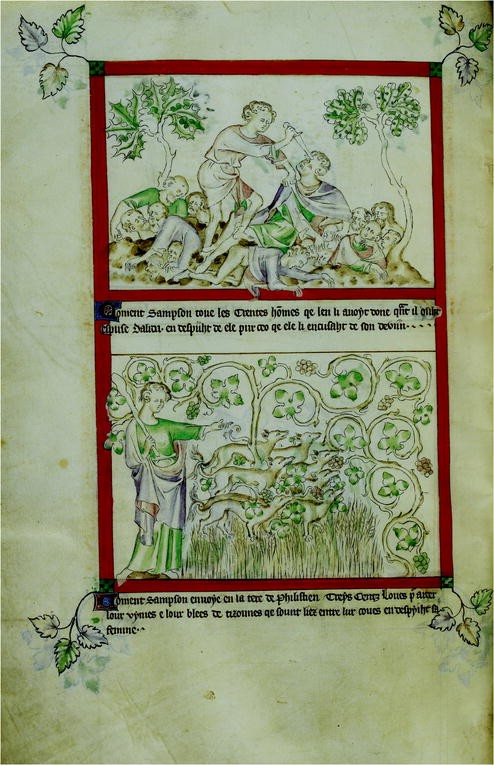 Coment Sampson toue les Trentes hõmes qe len li auoyt done qñt il
espuse Dalida. en despiht de ele pur ceo qe ele li encusaht de son deuin
Coment Sampson enuoye en la tere de Philistien Treys Centz Loues p̃ arder
lour vynnes e lour bleez de tizounes qe sount liez entre lur coues en despyiht sa
femme